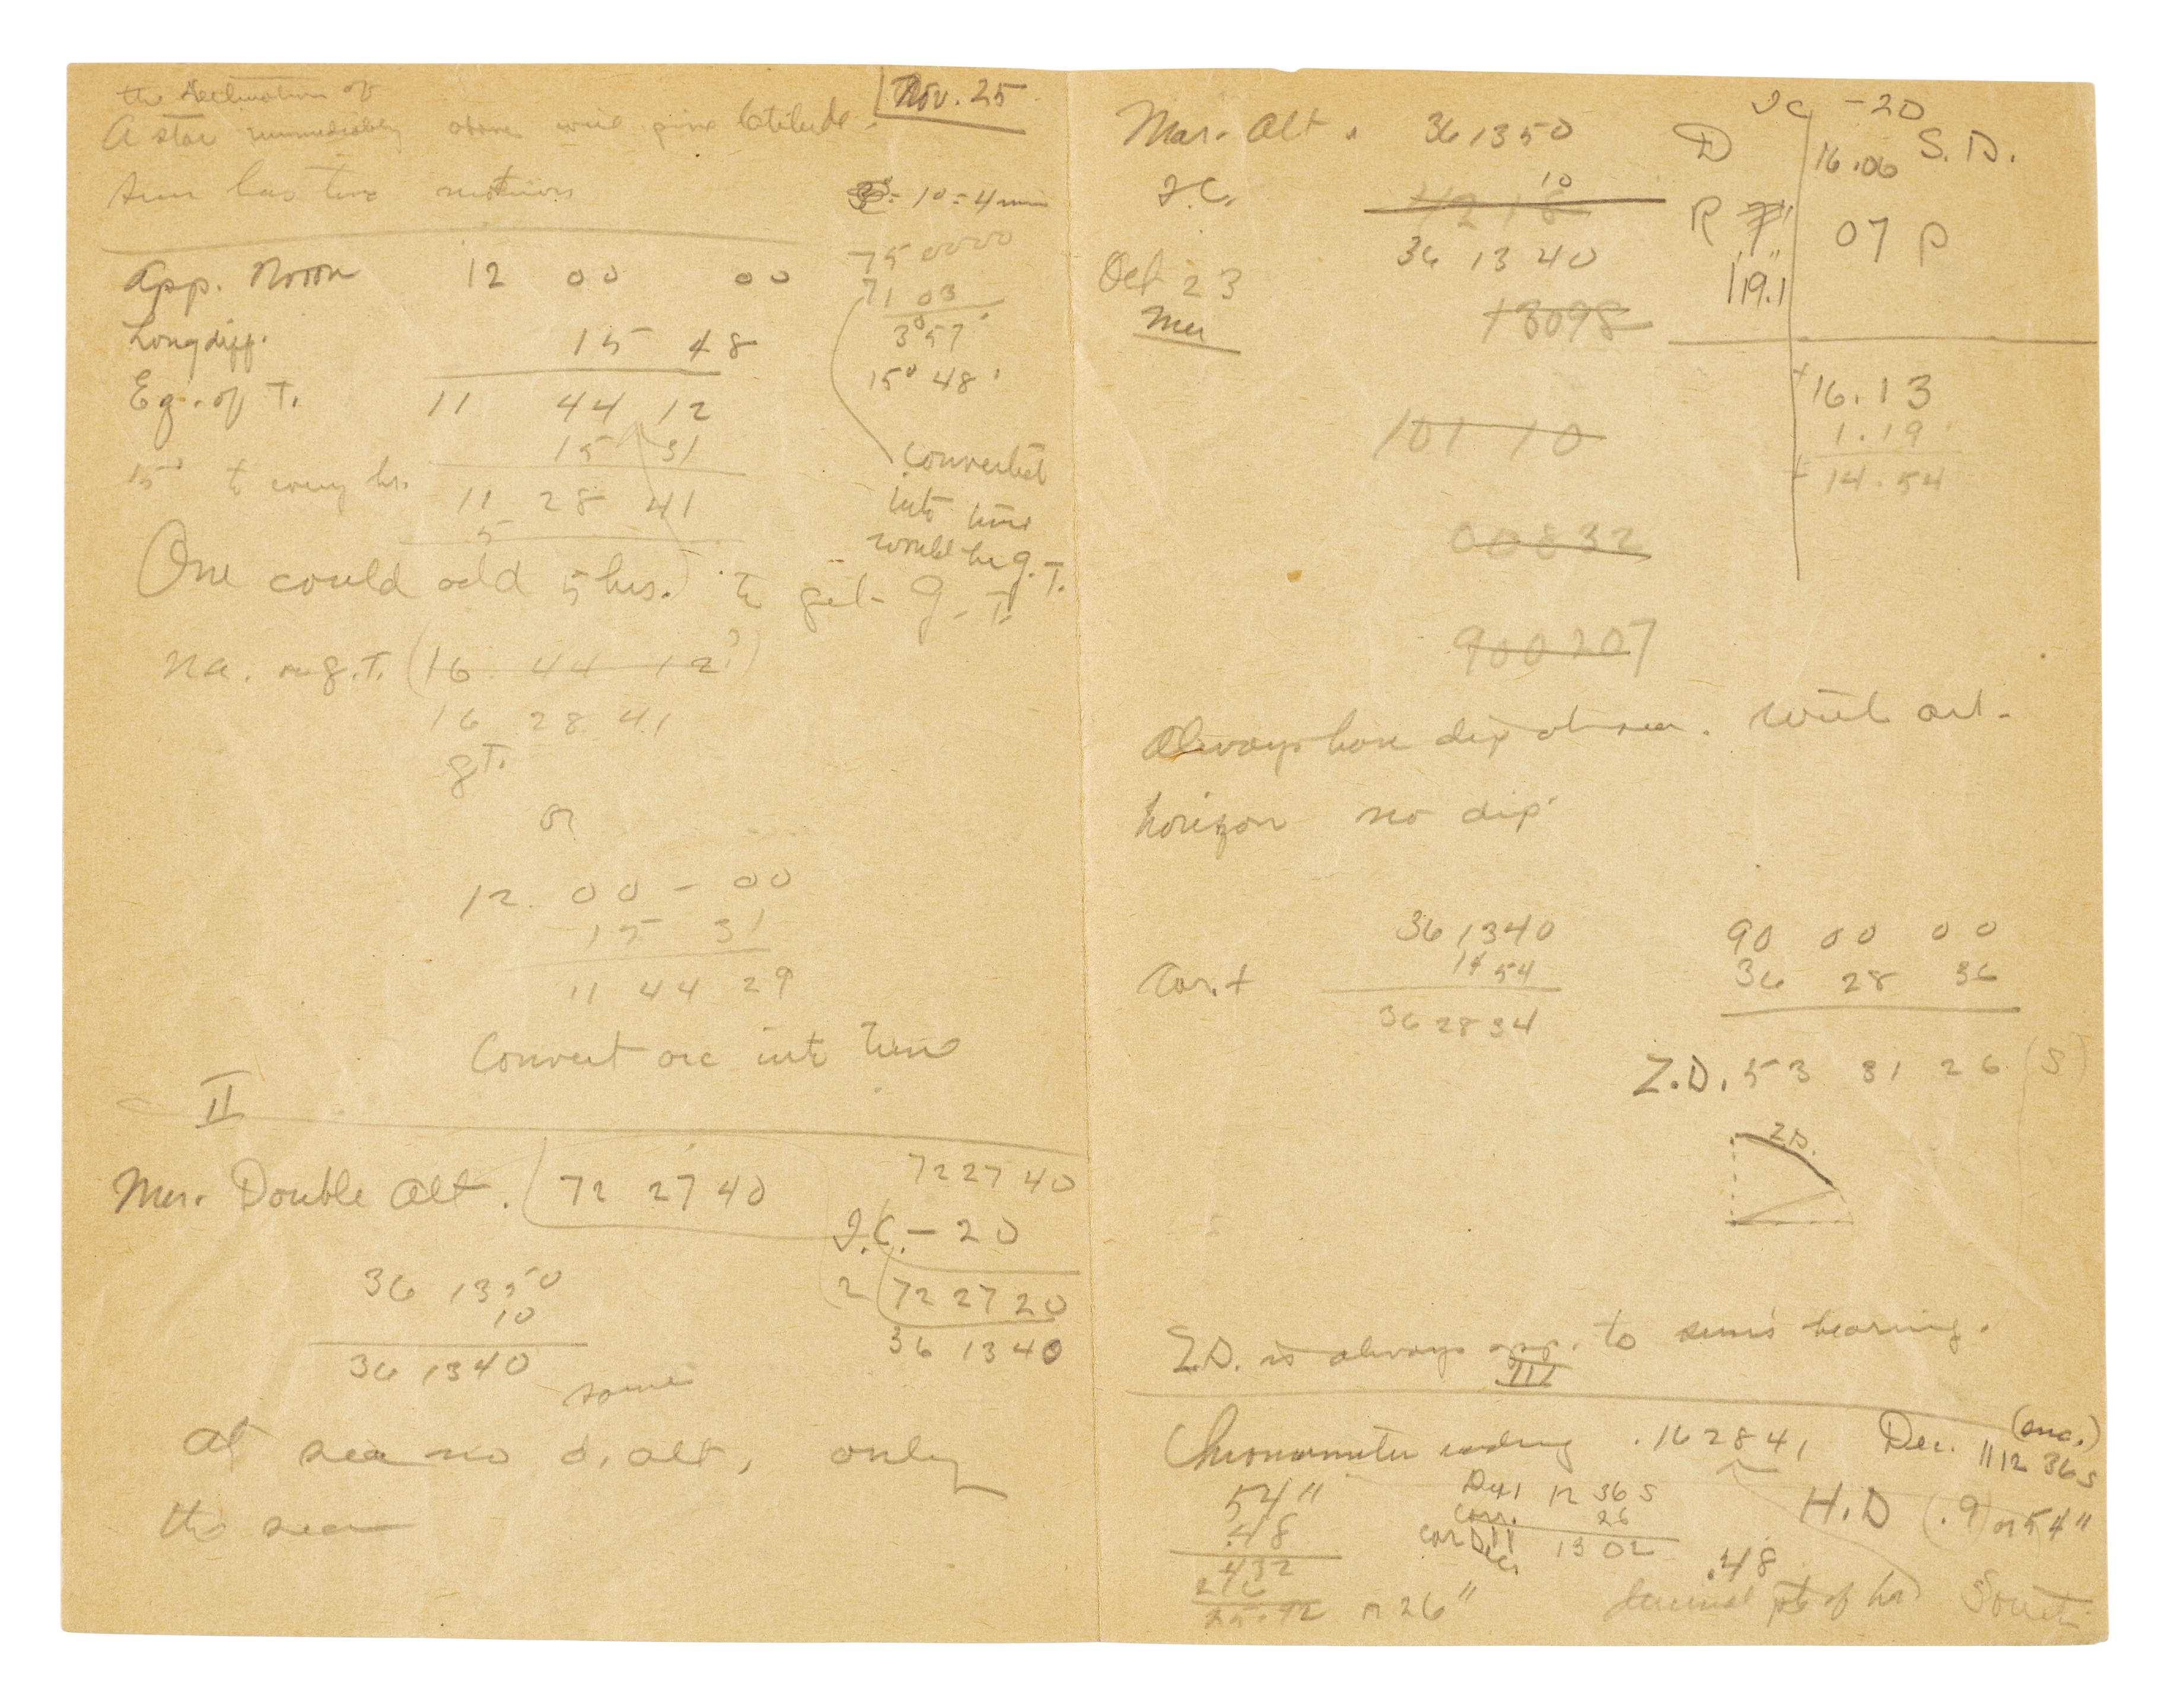 the declination of
A star immediately above will give latitude.
Nov. 25
Sun has two motions
1° = 4 min
App. Noon 12 00 00
75 00 00
71 03
3° 57'
15° 48'
Long diff. 15 48
Eq. of T. 11 44 12
15 31
15° to every hr. 11 28 41
5
converted
into time
would be G.T.
One could add 5 hrs. to get G.T.
(16 44 12)
16 28 41
g T.
or
12 00 - 00
15 31
11 44 29
Convert arc into time
II
Mer. Double Alt. 72 27 40
72 27 40
I.C. - 20
2 72 27 20
36 13 40
36 13 50
10
36 13 40
same
At sea no d. alt, only
the
Mer. Alt. 36 13 50
I.C. 10
36 13 40
Oct 23
Mer
13098
101 10
00832
900207
IC -20
D 16.06 S.D.
R 7" 07 P
1'19.1
+16.13
1.19
+ 14.54
Always have dip at sea. With art.
horizon no dip
36 13 40
Cor. + 14 54
36 28 34
90 00 00
36 28 36
Z.D. 53 31 26 (S)
Z.D.
Z.D. is always opp. to sun's bearing.
III
Chronometer reading 16 28 41
Dec. 11 12 36 S
54"
.48
432
216
25.92 or 26"
Dec 11 12 36 S
Corr. 26
Cor Dec 11 13 02
H.D (.9) or 54"
.48
decimal pt of hr South